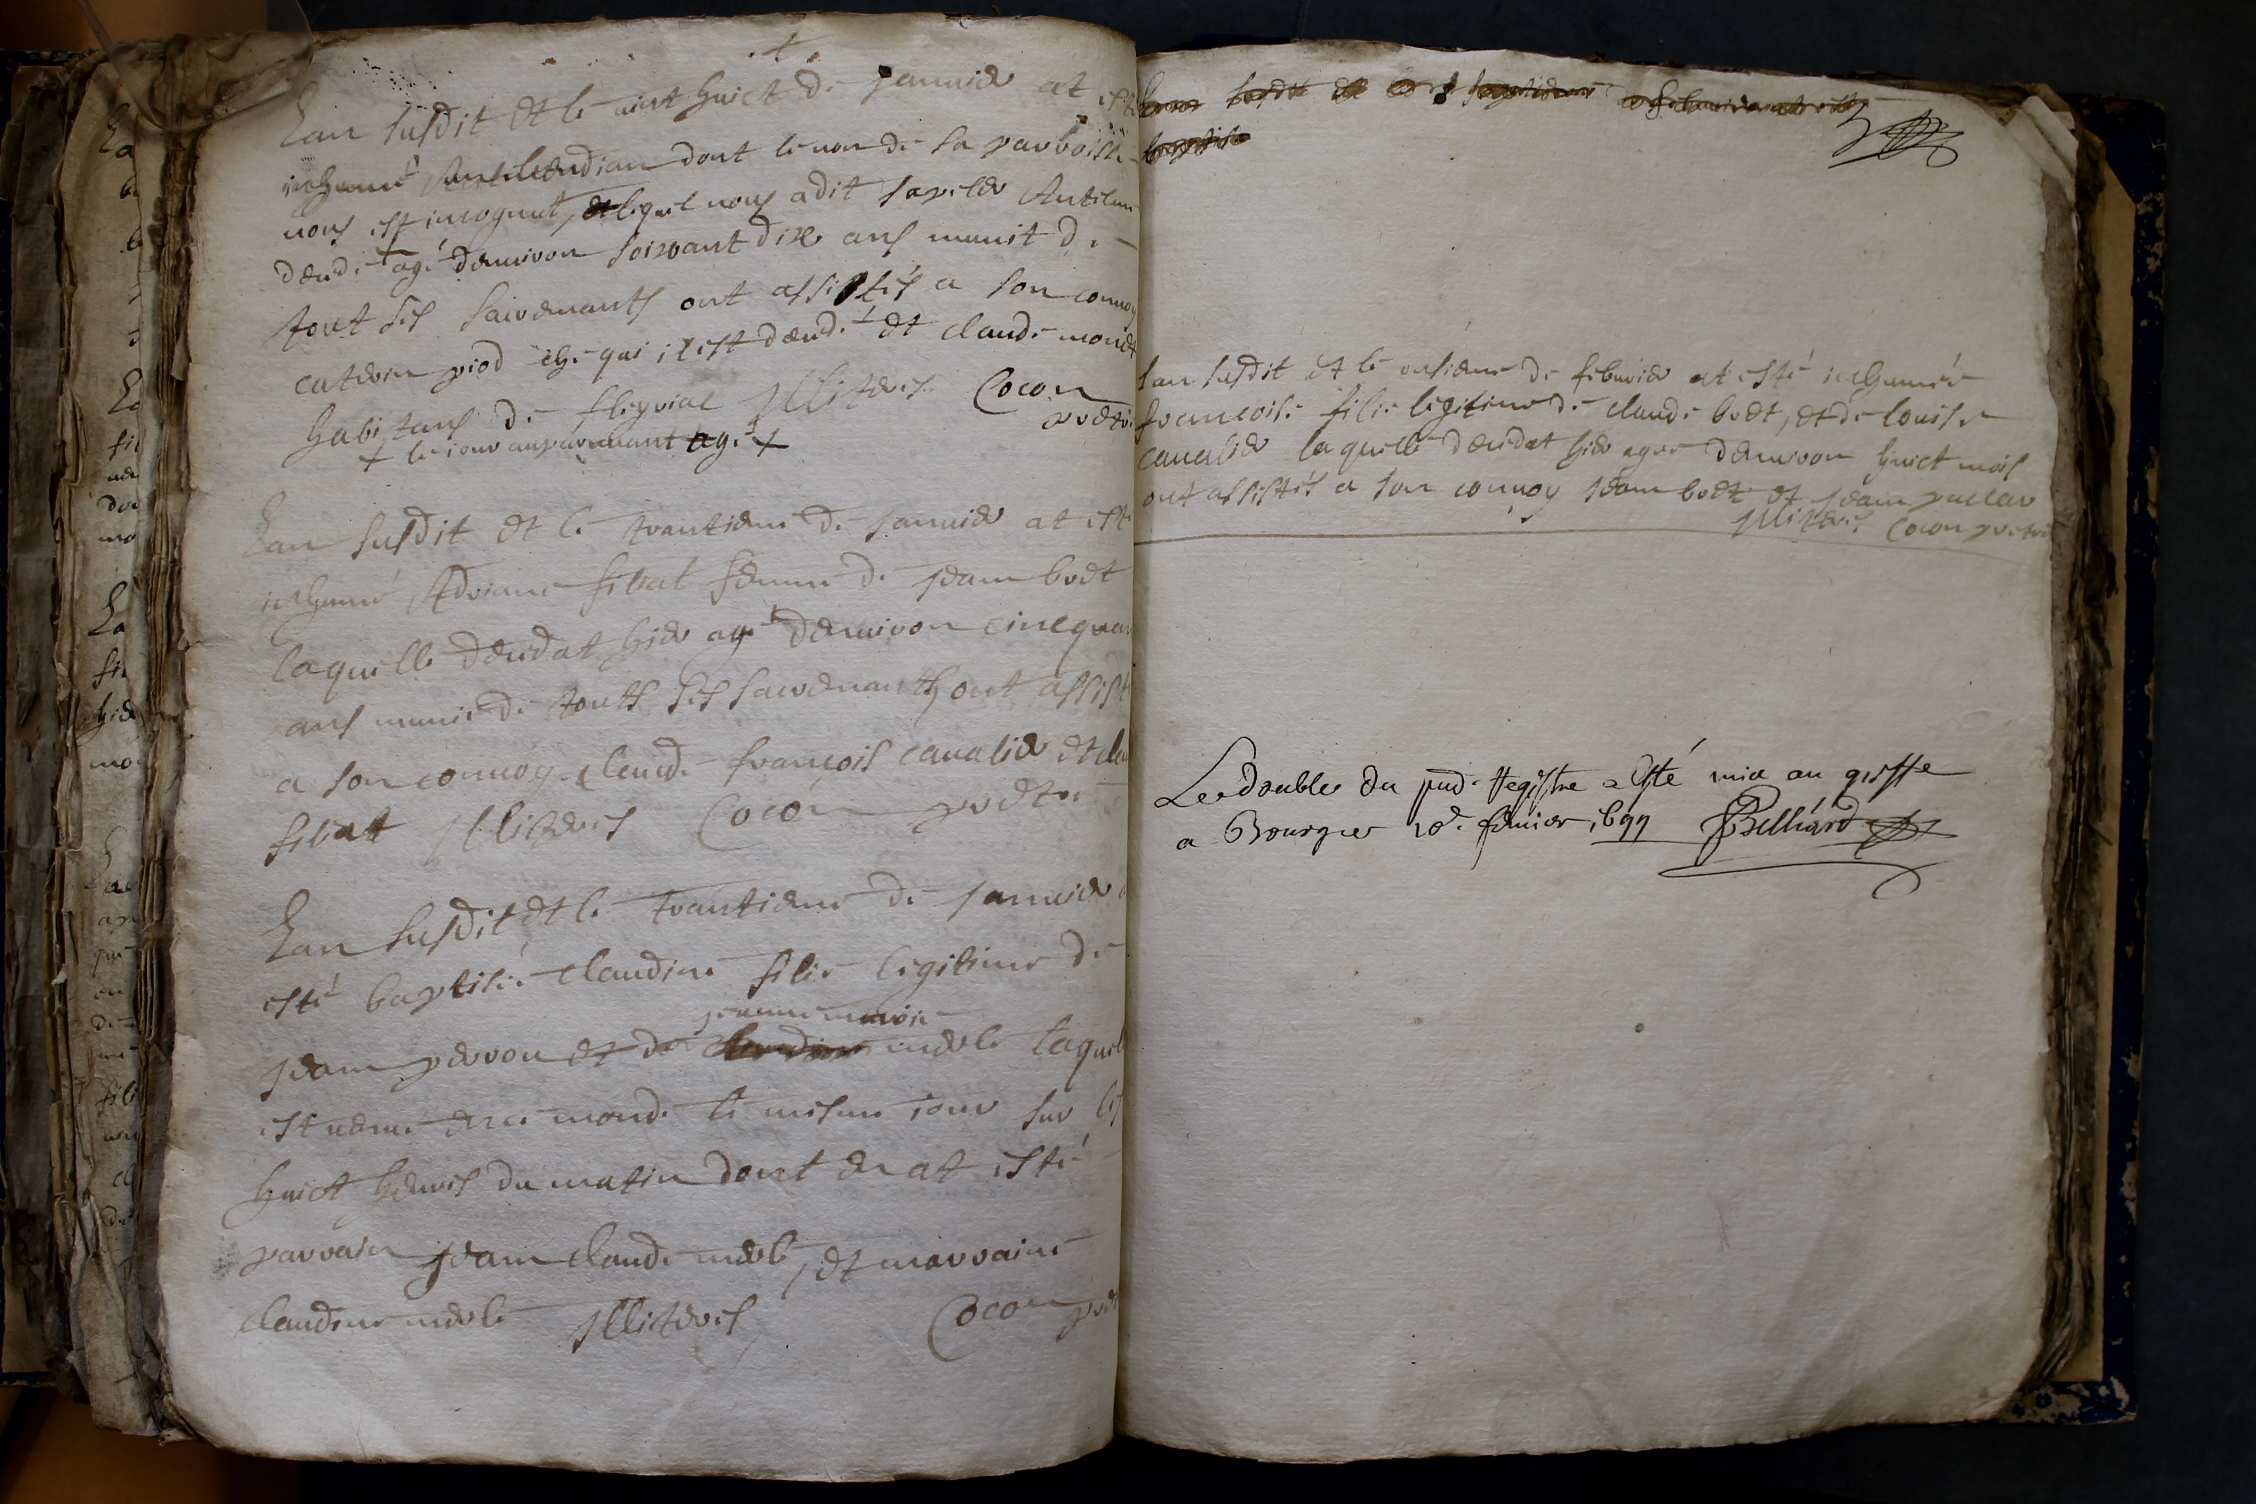 Lan susdit et le vint huict de januier at esté
inhumé un mendian dont le nom de sa parroisse
nous est incognut, lequel nous a dit sapeler Antelme
decedé + agé denuiron soixant dix ans munit de
tout ses sacremants ont assistés a son conuoy
caterin piod che qui il est decedé et claude monet
habitans de illiteres Cocon
pretre
+ le iour auparauuant agé +
Lan susdit et le trantieme de januier at esté
inhumé Adriane filiat femme de jean bret
laquelle decedat hier agé denuiron cinequante
ans munie de touts ses sacremants ont assistés
a son conuoy claude françois caualier et claude
filiat illiteres Cocon pretre
Lan susdit et le trantieme de januier at
esté baptisée claudine filie legitime de
jeanne marie
jean perron et de claudine merle laquelle
est venue en ce monde le mesme iour sur les
huict heures du matin dont en at esté
parrain jean claude merle, et marraine
claudine merle illiteres Cocon pretre
lan susdit et le onsieme de feburier at esté inhumée
francoise filie legitime de claude bret, et de louise
caualier laquelle decedat hier agee denuiron huict mois
ont assistés a son conuoy jean bret et jean
illiteres Cocon pretre
Le double du pnd. Registre a esté mis au greffe
a Bourg ce 18e. feurier 1699 Belliard